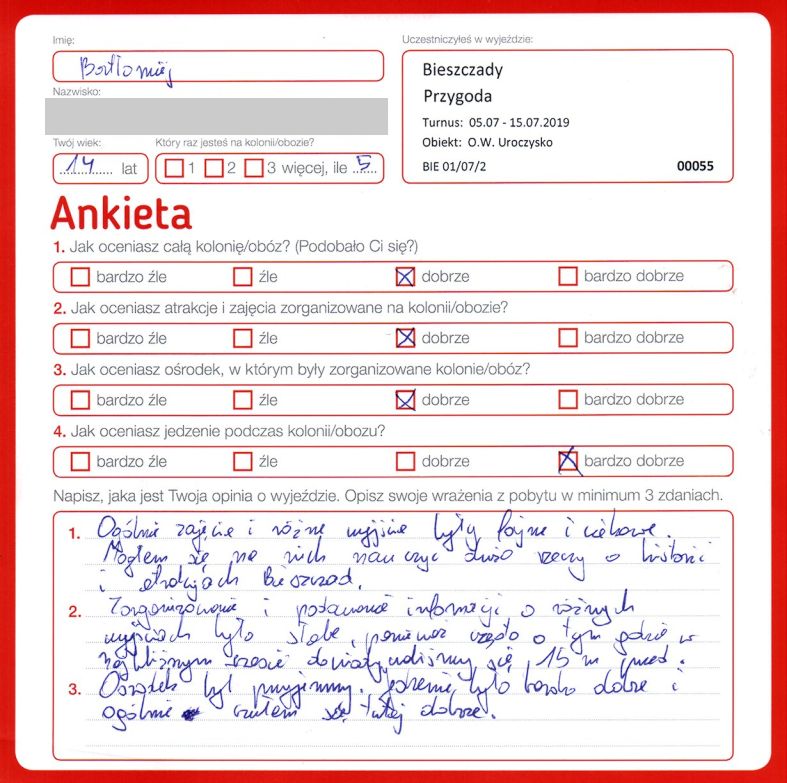 Imię:
Bartłomiej
Nazwisko:
Twój wiek:
14 lat
Który raz jesteś na kolonii/obozie?
1 2 3 więcej, ile 5
Uczestniczyłeś w wyjeździe:
Bieszczady
Przygoda
Turnus: 05.07 - 15.07.2019
Obiekt: O.W. Uroczysko
BIE 01/07/2 00055
Ankieta
1. Jak oceniasz całą kolonię/obóz? (Podobało Ci się?)
bardzo źle źle dobrze bardzo dobrze
2. Jak oceniasz atrakcje i zajęcia zorganizowane na kolonii/obozie?
bardzo źle źle dobrze bardzo dobrze
3. Jak oceniasz ośrodek, w którym były zorganizowane kolonie/obóz?
bardzo źle źle dobrze bardzo dobrze
4. Jak oceniasz jedzenie podczas kolonii/obozu?
bardzo źle źle dobrze bardzo dobrze
Napisz, jaka jest Twoja opinia o wyjeździe. Opisz swoje wrażenia z pobytu w minimum 3 zdaniach.
1. Ogólnie zajęcia i różne wyjścia były fajne i ciekawe.
Mogłem się na nich nauczyć dużo rzeczy o historii
i atrakcjach Bieszczad.
2. Zorganizowanie i podawanie informacji o różnych
wyjściach było słabe, ponieważ często o tym gdzie w
najbliższym czasie dowiadywaliśmy się 15 m przed.
3. Ośrodek był przyjemny, jedzenie było bardzo dobre i
ogólnie czułem się tutaj dobrze.